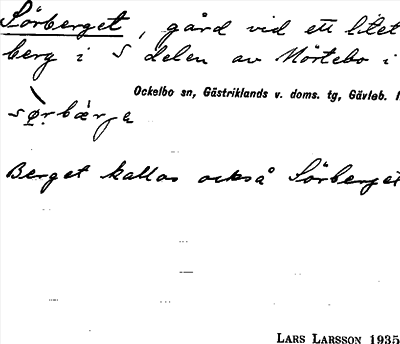 Sörberget, gård vid ett litet
berg i S delen av Mörtebo i
Ockelbo sn, Gästriklands v. doms. tg, Gävleb. l
Berget kallas också Sörberget
LARS LARSSON 1935